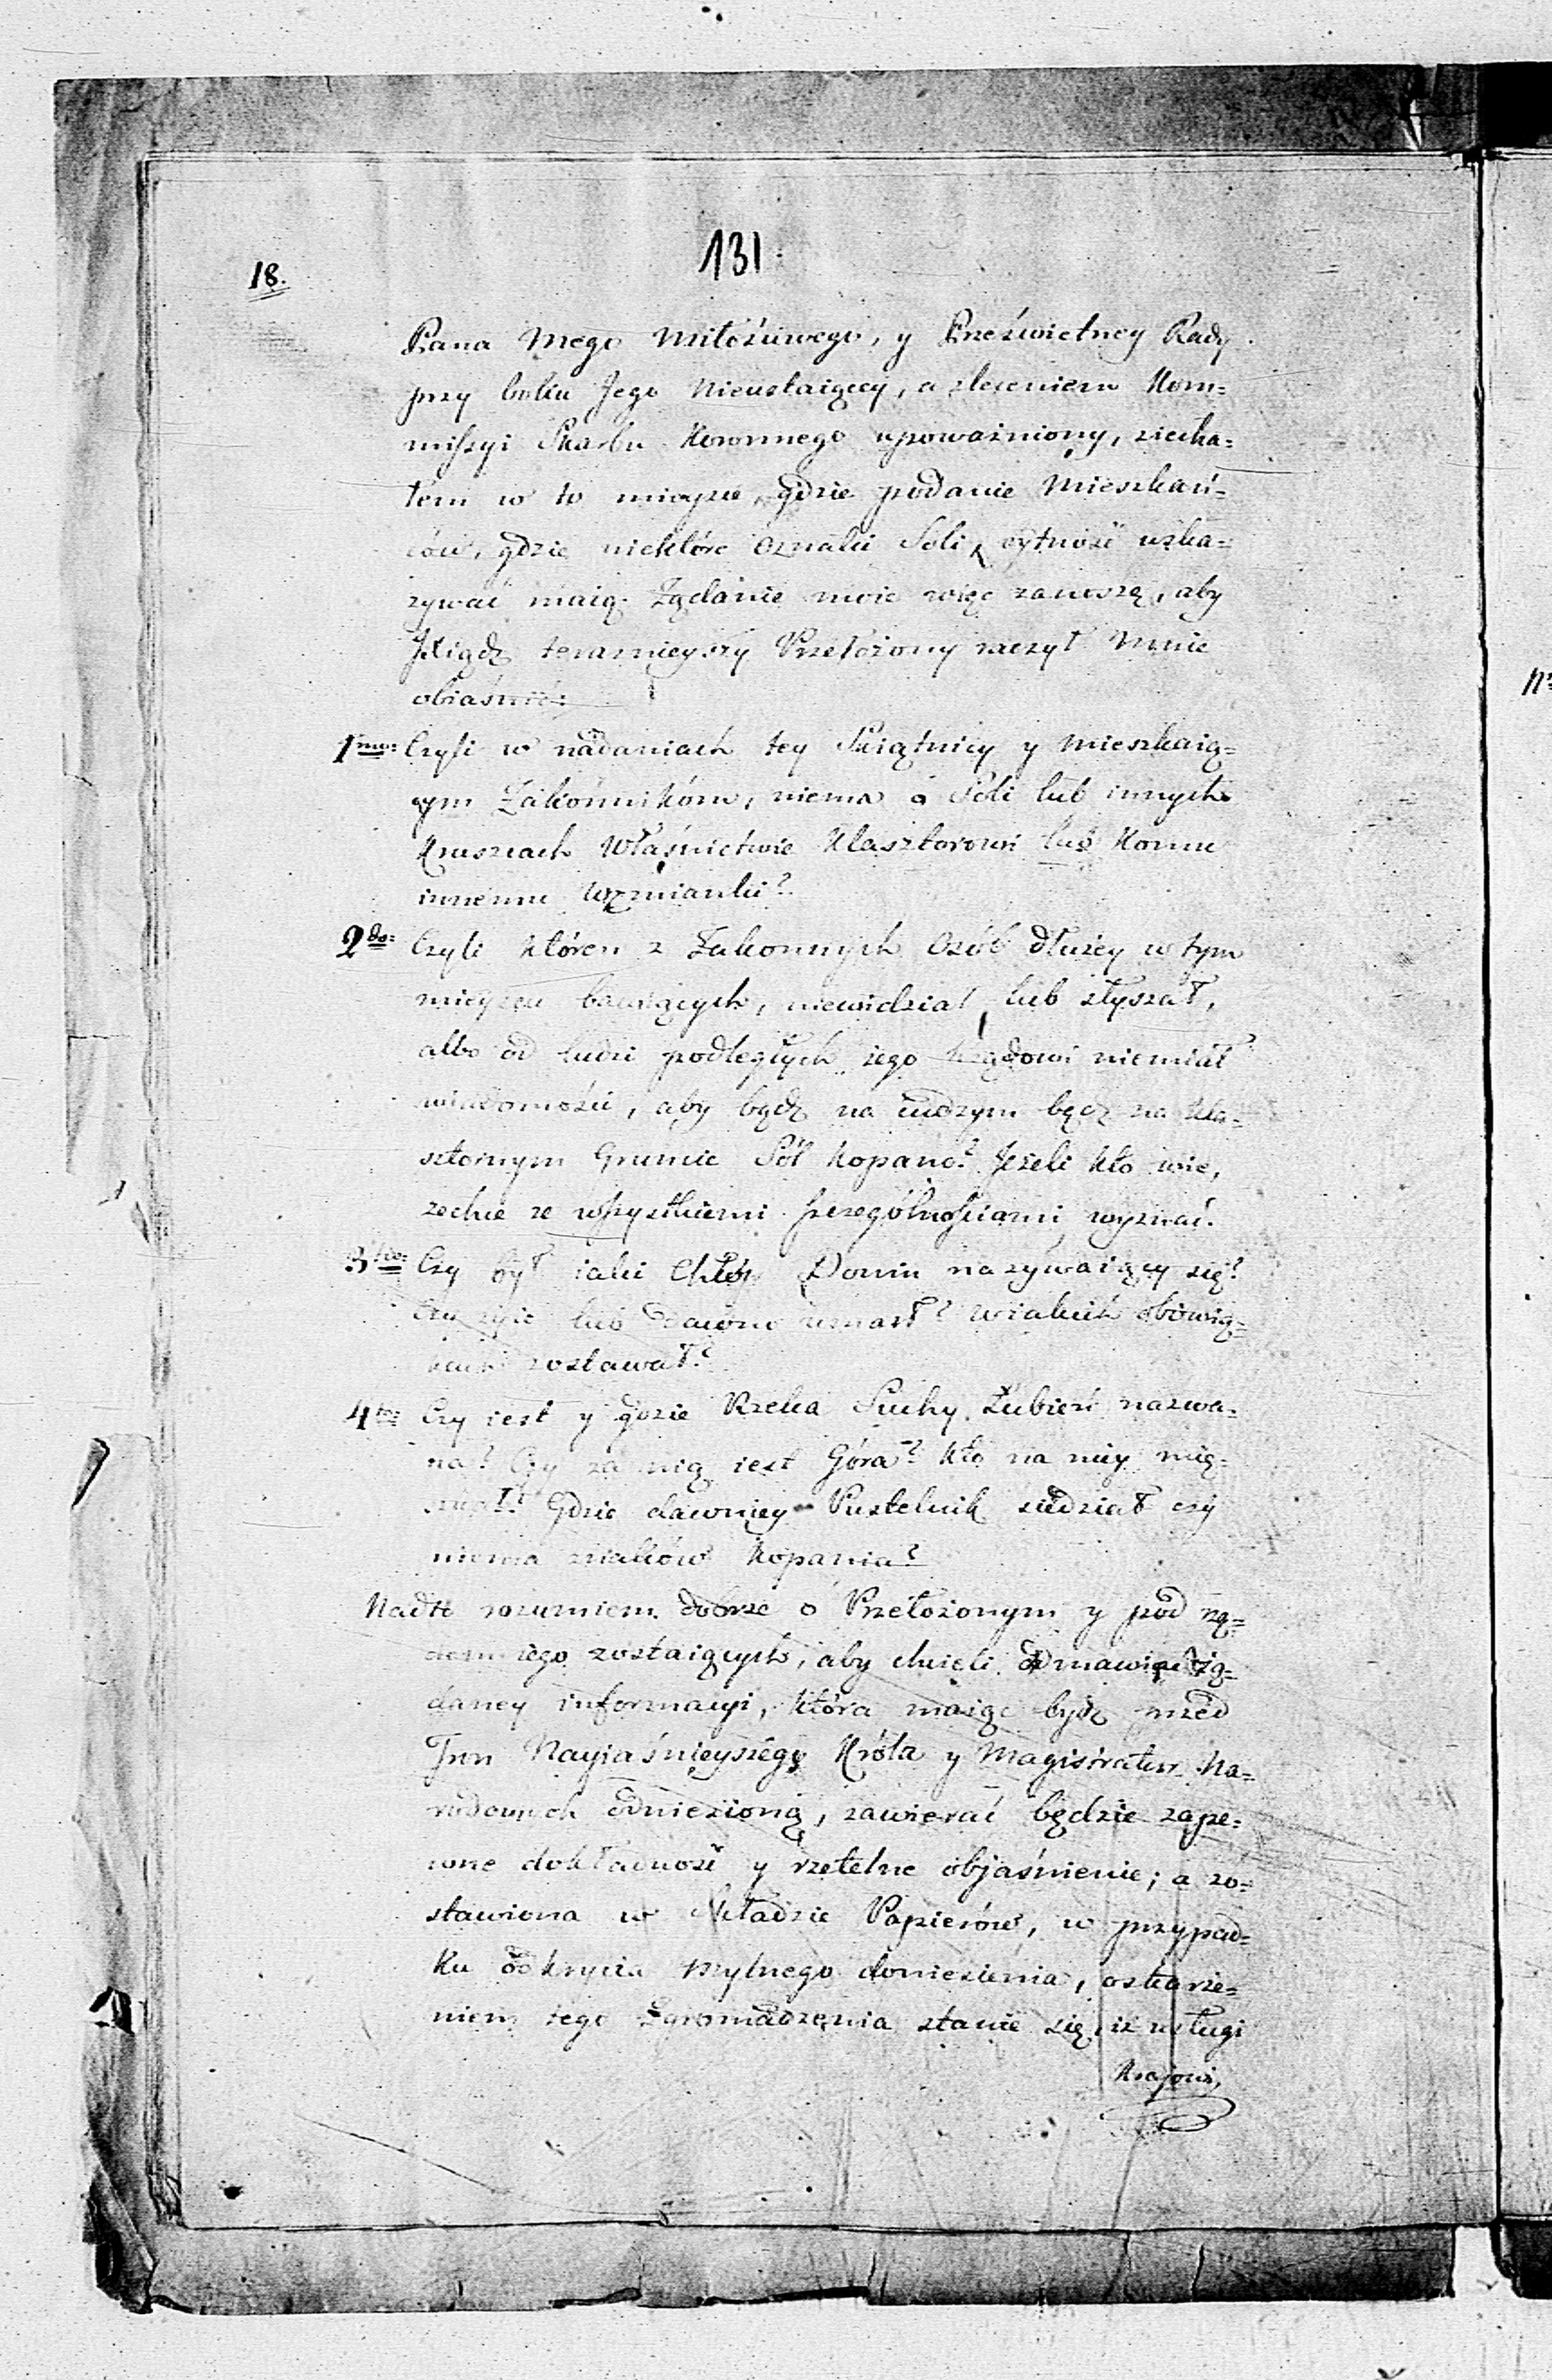 131.
18.
Pana Mego Miłościwego, y Prześwietney Rady
przy boku Jego Nieustaiącey, a zleceniem Kom=
missyi Skarbu Koronnego upoważniony, ziecha=
łem w to mieysce, gdzie podanie Mieszkań=
ców, gdzie niektóre oznaki Soli bytność uka=
zywać maią. Żądanie moie więc zanoszę, aby
JXiądz teraznieyszy Przełożony raczył Mnie
obiaśnić:
1mo: Czyli w nadaniach tey Swiątnicy y mieszkaią=
cym Zakonnikóm, niema o Soli lub innych
Kruszcach Właśnictwie Klasztorowi lub Komu
innemu Wzmianki?
2do: Czyli któren z Zakonnych Osób dłużey w tym
mieyscu bawiących, niewidział lub słyszał,
albo od ludzi podległych iego Rządowi niemiał
wiadomości, aby bądź na cudzym bądź na Kla=
sztornym Gruncie Sól kopano? Jeżeli kto wie,
zechce ze wszystkiemi szczególnościami wyznać.
3tio: Czy był iaki Chłop Donin nazywaiący się?
Czy żyie lub dawno umarł? w iakich obowią=
zkach zostawał?
4to: Czy iest y gdzie Rzeka Suchy Łubień nazwa=
na? Czy za nią iest Góra? Kto na niey mię=
szkał? Gdzie dawniey Pustelnik siedział czy
niema znaków kopania?
Nadto rozumiem dobrze o Przełożonym y pod rzą=
dem iego zostaiących, aby chcieli odmawiać żą=
daney informacyi, która maiąc bydź przed
Tron Nayiaśnieyszego Króla y Magistratur Na=
rodowych odniesioną, zawierać będzie zape=
wne dokładność y rzetelne objaśnienie; a zo=
stawiona w Składzie Papierów, w przypad=
ku odkrycia mylnego doniesienia, oskarże=
niem tego Zgromadzenia stanie się, iż usługi
Krajowi,